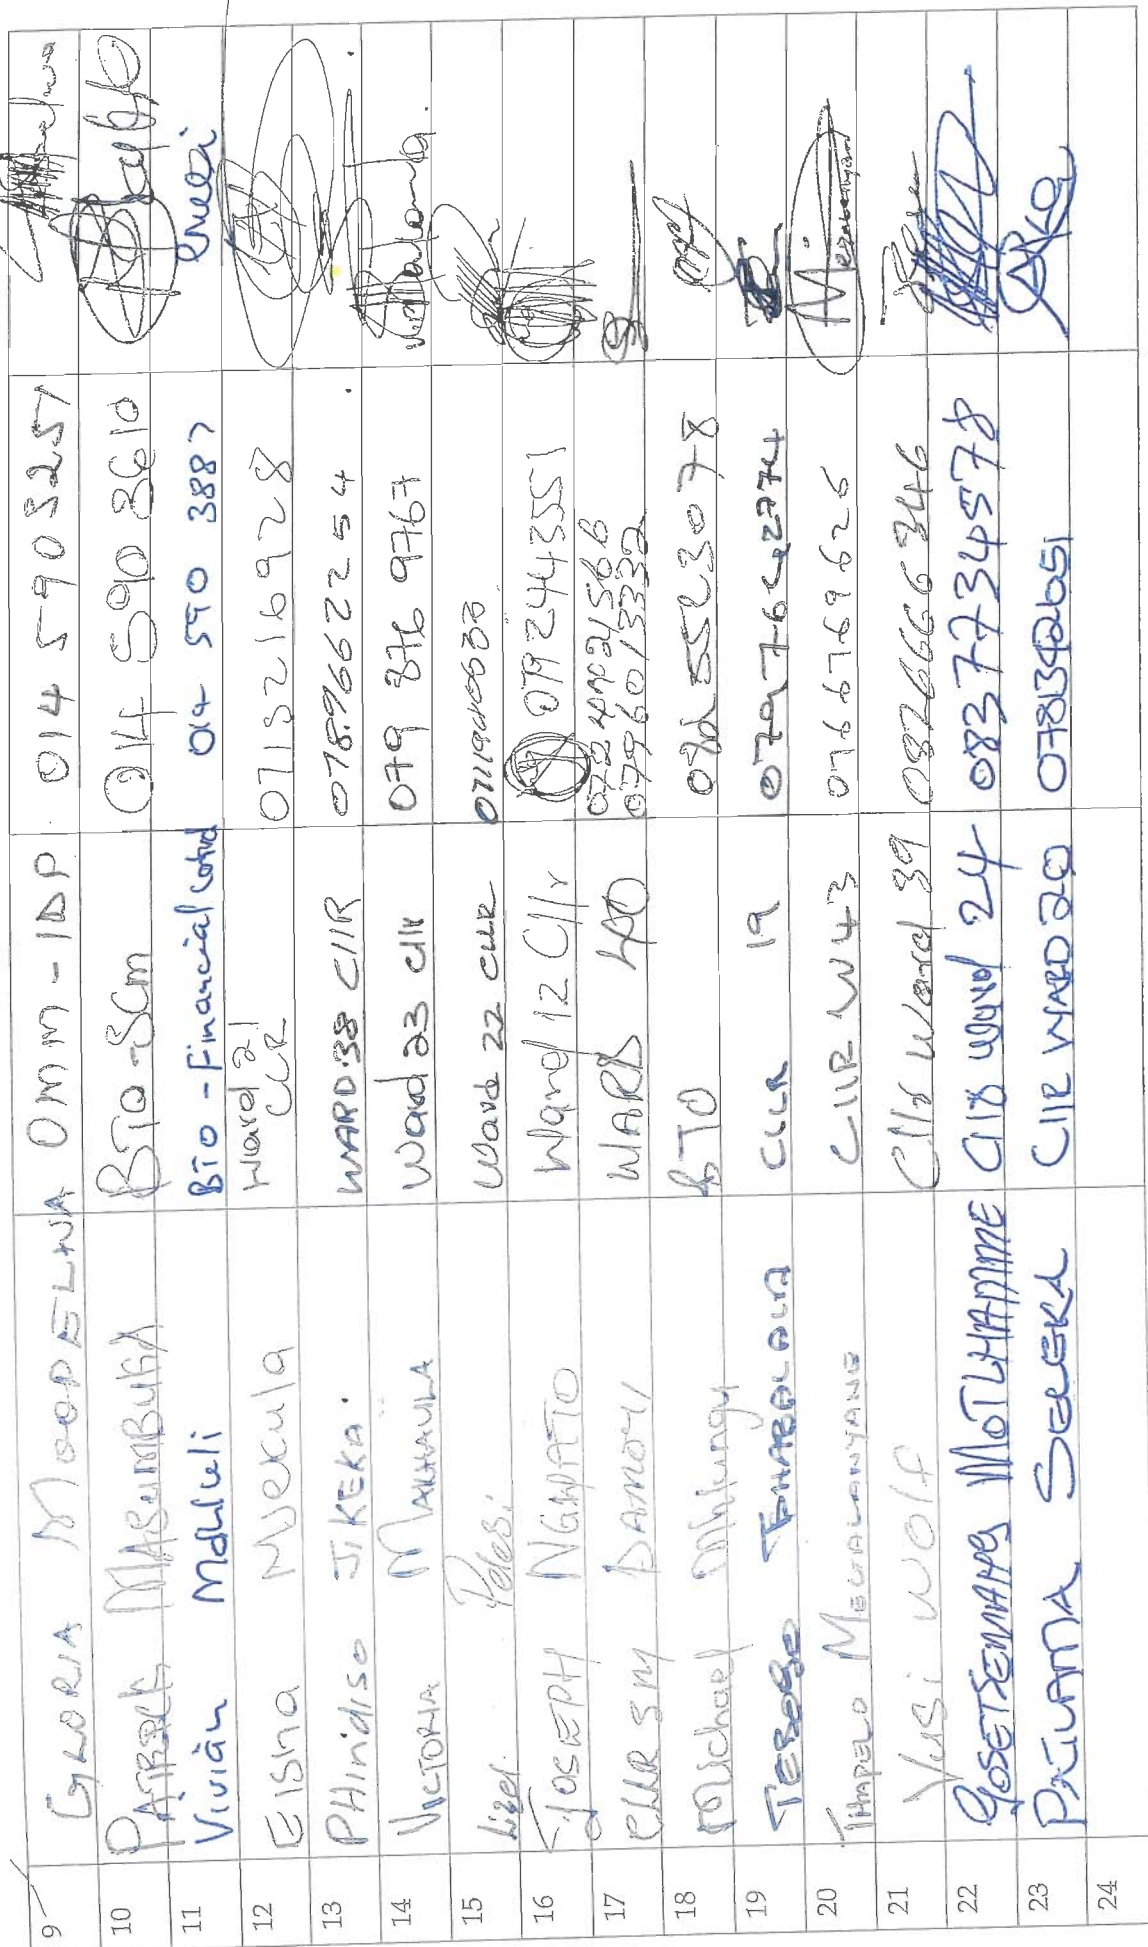 9 GLORIA MOOPELWA OMM-IDP 014 590 3257
10 PATRICK MASUMBUKA BTO-SCM 014 590 3610
11 Vivian Mdhluli BTO - Financial Control 014 590 3887
12 Elsina Nekula Ward 21 CLLR 0713216928
13 PHindiso JIKEKA. WARD 38 CllR 0789662254.
14 VICTORIA MAKHAULA Ward 23 Cllr 079 876 9767
15 Lizel Pelesi Ward 22 CLLR
16 JOSEPH NGWATO Ward 12 Cllr 0792443551
17 CLLR SM DAMOYI WARD 40 0796013332
18 Michael Mhlungu BTO 0825523078
19 TEBOGO CLLR 19
20 THAPELO MEGALANYANE CllR W43 0766769626
21 Vusi WOLF Cllr Ward 39 0826666346
22 MOTLHAMME Cllr Ward 24 0837734578
23 PAJUAMA SELEKA CllR WARD 20 0783342651
24